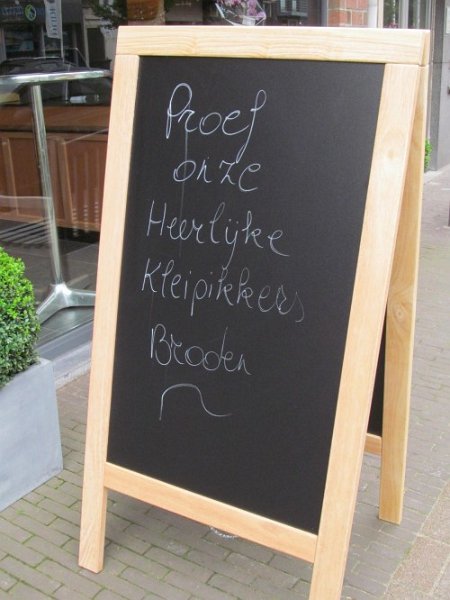 Proef
onze
Heerlijke
Kleipikkers
Broden